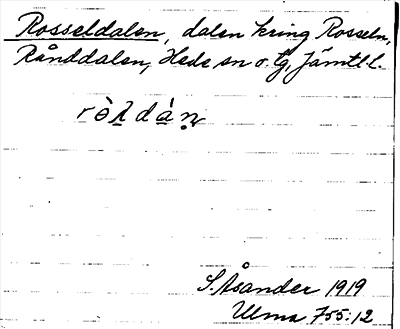 Rosseldalen, dalen kring Rosseln,
Rånddalen, Hede sn o. tg, Jämtl. l.
S. Åsander 1919
Ulma 755:12